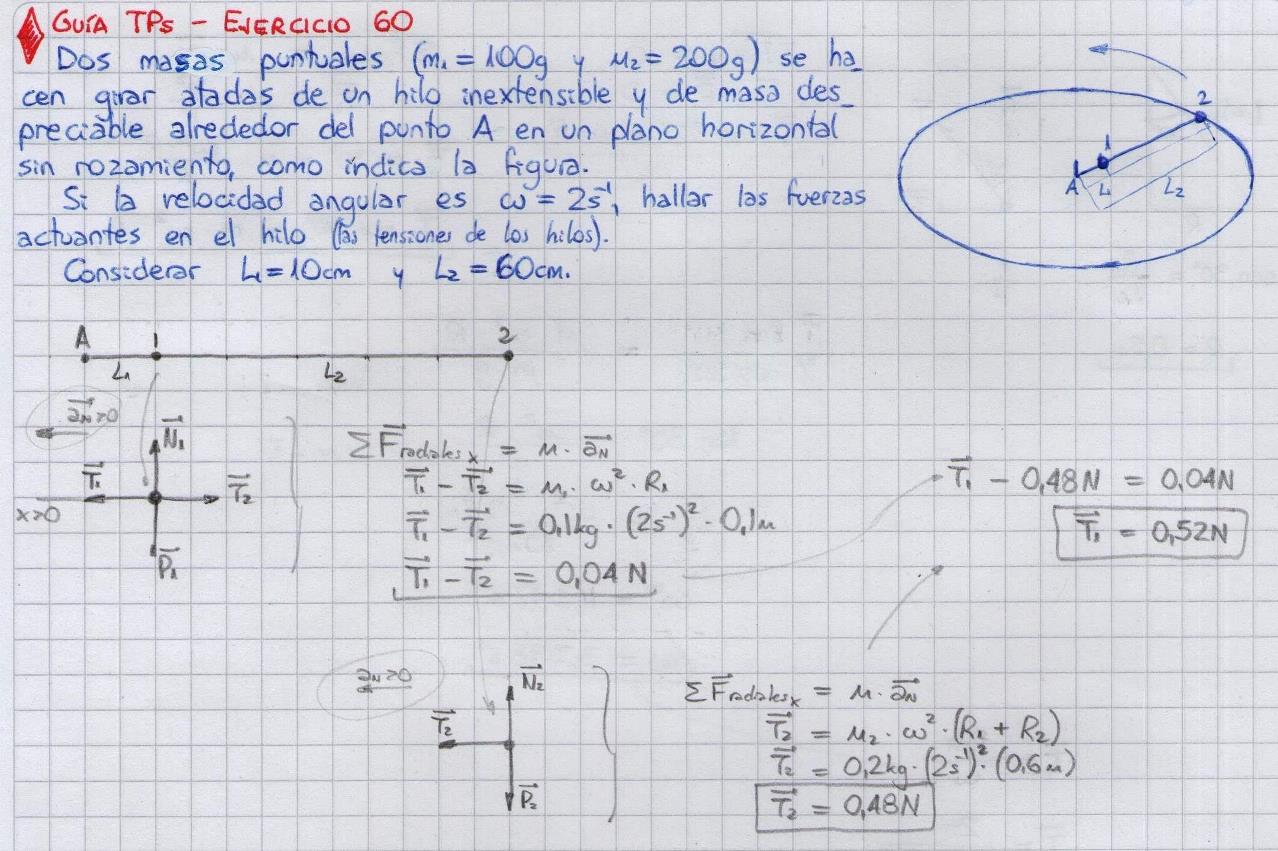 GUÍA TPs - EJERCICIO 60
Dos masas puntuales (m₁ = 100g y m₂ = 200g) se ha_
cen girar atadas de un hilo inextensible y de masa des_
preciable alrededor del punto A en un plano horizontal
sin rozamiento, como indica la figura.
Si la velocidad angular es ω = 2s⁻¹, hallar las fuerzas
actuantes en el hilo (las tensiones de los hilos).
Considerar L₁ = 10cm y L₂ = 60cm.
2
1
A L₁ L₂
A 1 2
L₁ L₂
a⃗N>0
N⃗₁
T⃗₁ T⃗₂
x>0
P⃗₁
ΣF⃗radialesₓ = m · a⃗N
T⃗₁ - T⃗₂ = m₁ · ω² · R₁
T⃗₁ - T⃗₂ = 0,1kg · (2s⁻¹)² · 0,1m
T⃗₁ - T⃗₂ = 0,04 N
T⃗₁ - 0,48N = 0,04N
T⃗₁ = 0,52N
a⃗N>0
N⃗₂
T⃗₂
P⃗₂
ΣF⃗radialesₓ = m · a⃗N
T⃗₂ = m₂ · ω² · (R₁ + R₂)
T⃗₂ = 0,2kg · (2s⁻¹)² · (0,6m)
T⃗₂ = 0,48N